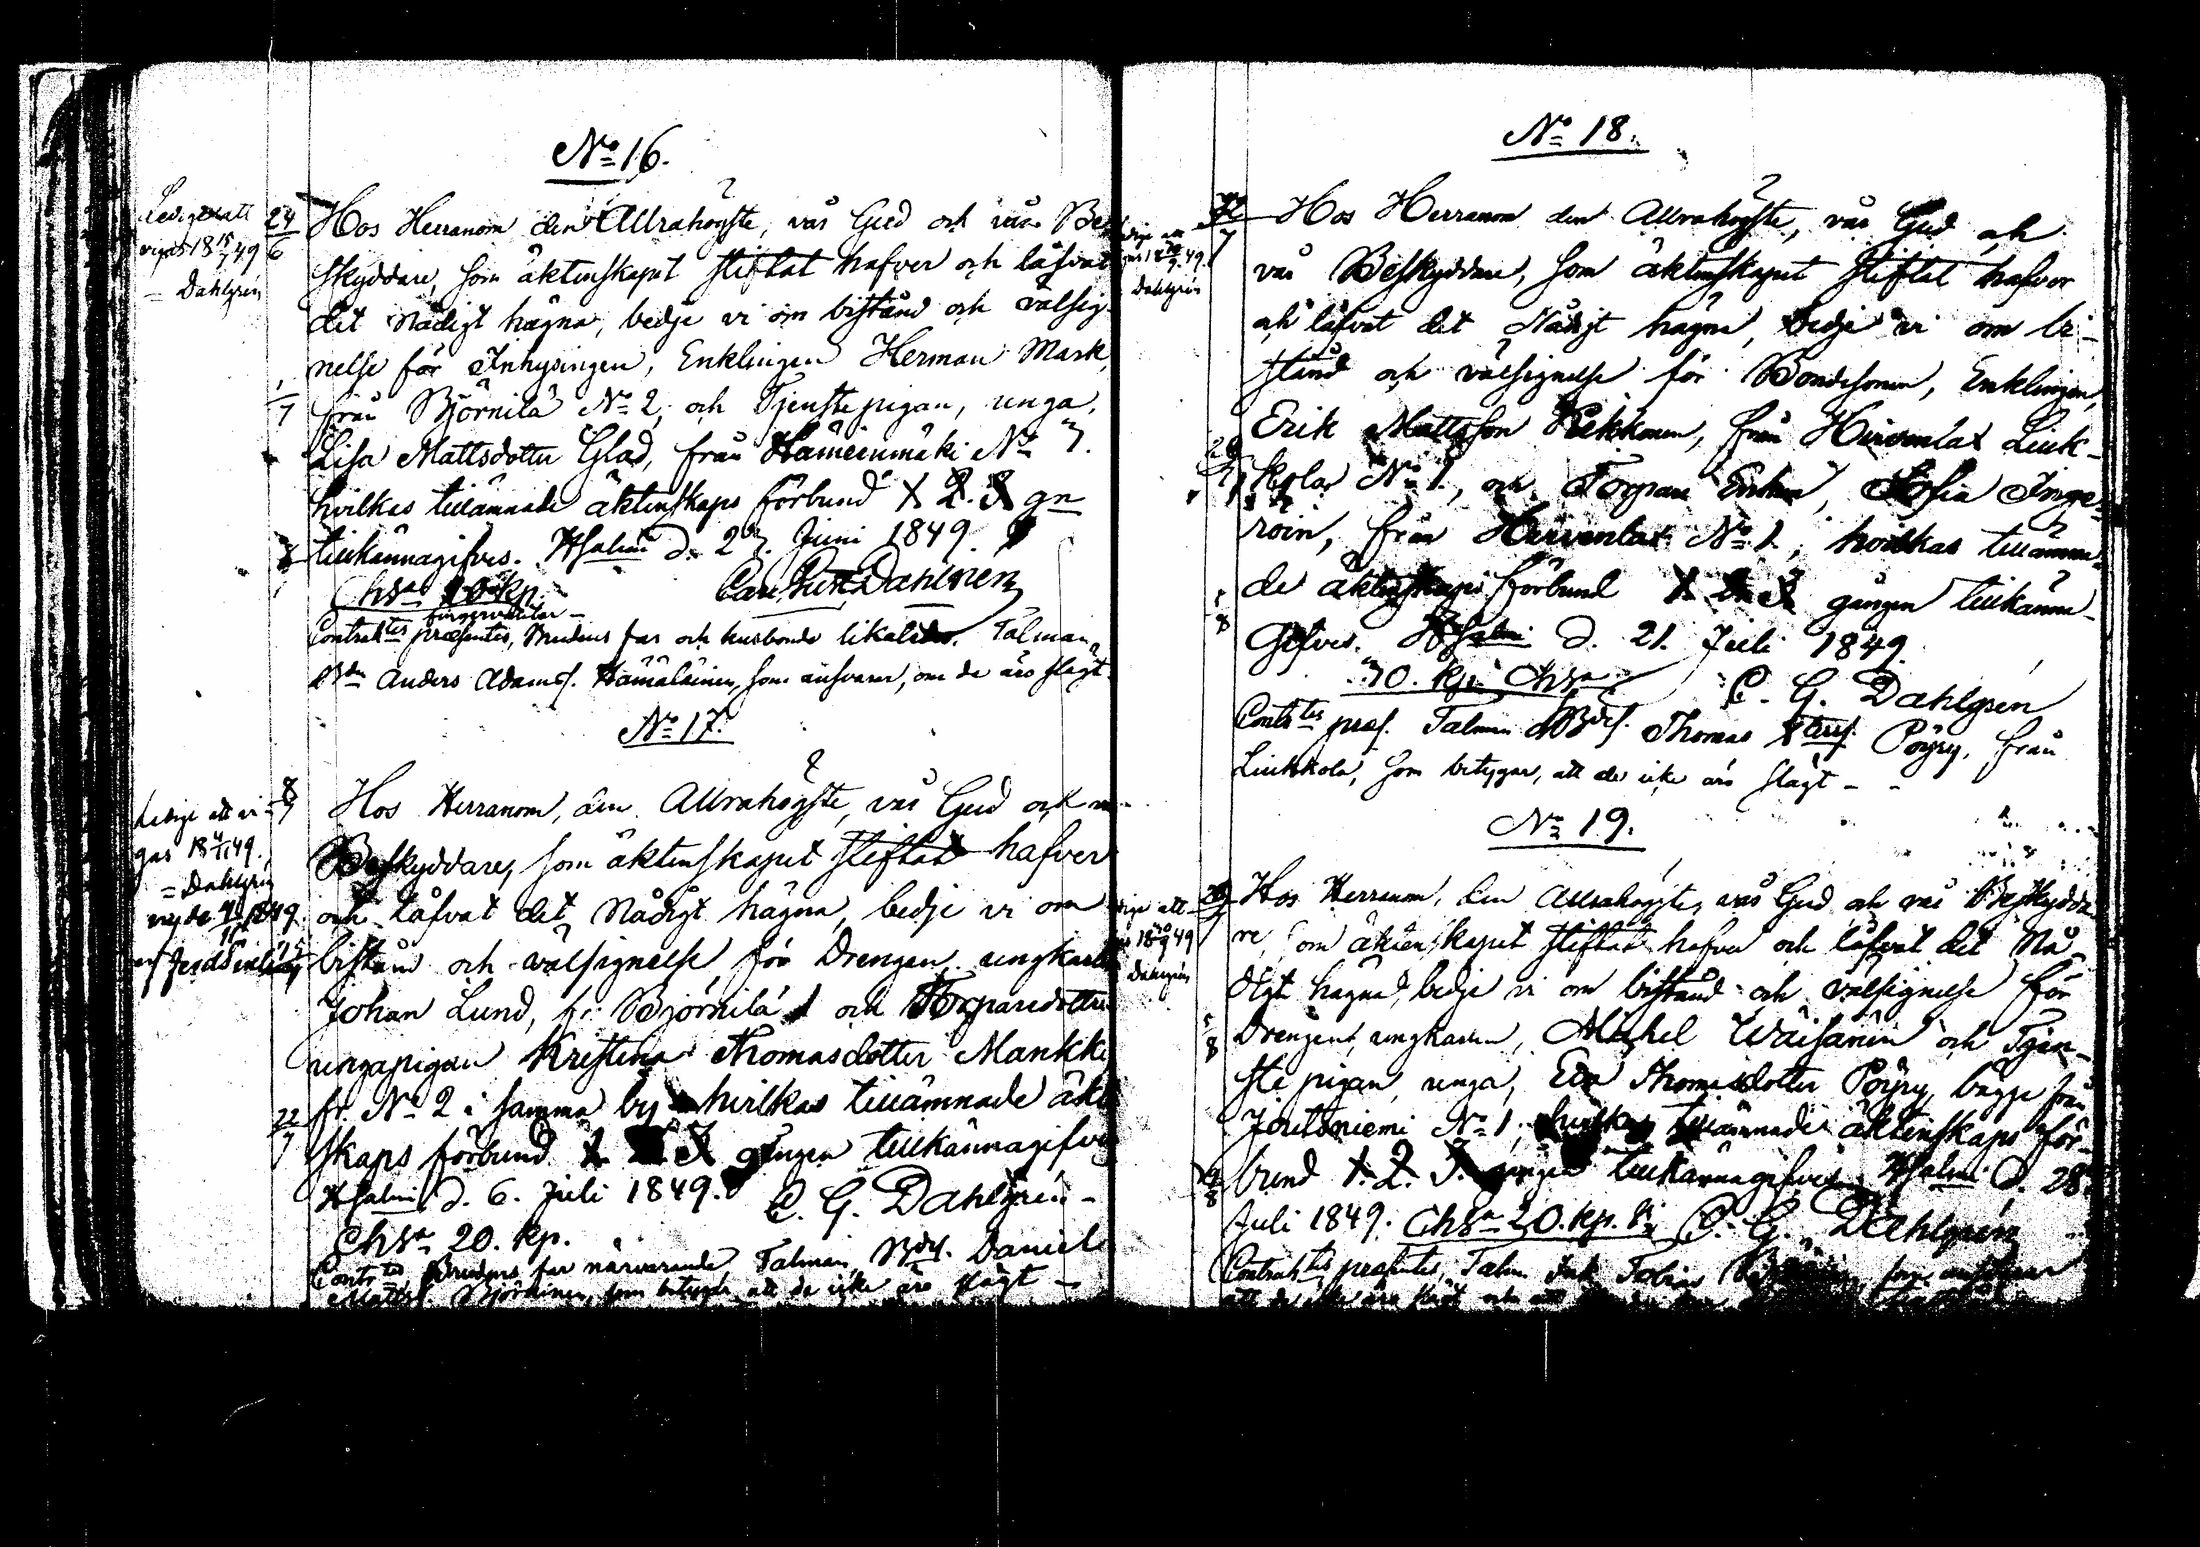 No 16.
Ledige att
vigas 18 15/7 49
= Dahlgrén
24/6
Hos Herranom den Allrahögste, vår Gud och vår Be-
skyddare, som äktenskapet stiftat hafver och låfvat
det Nådigt hägna, bedje vi om bistånd och välsig-
nelse för Inhysingen, Enklingen Herman Mark,
1/7
från Björnilä No 2, och Tjenstepigan, unga,
Lisa Mattsdotter Glad, från Hämeenmäki No 7.
hvilkas tillämnade äktenskaps förbund 1. 2. 3 gn
8/7
tillkännagifves. Hsalmi d. 23. Juni 1849.
Chsa 20 kp. Carl Gust. Dahlgrén
Contrahtes præsentes, Brudens far och husbonde likaledes. Talman
Bdn Anders Adamss. Hämäläinen, som ansvarar, om de äro slägt.
No 17.
Ledige att vi-
gas 18 4/11 49.
= Dahlgrén
vigde 4/11 1849.
8/7
Hos Herranom, den Allrahögste, vår Gud och vår
Beskyddare, som äktenskapet stiftat hafver
och låfvat det Nådigt hägna, bedje vi om
bistånd och välsignelse för Drengen ungkarlen
Johan Lund, fr. Björnilä 1 och Torparedottren
ungapigan Kristina Thomasdotter Mankki
fr. No 2 i samma by hvilkas tillämnade äkten-
22/7
skaps förbund 1. 2. 3 gången tillkännagifves
Hsalmi d. 6. Juli 1849. C. G. Dahlgrén
Chsa 20. kp.
Contrtes Brudens far närvarande Talman, Bdes. Daniel
Mattss. Björninen, som betygade att de icke äro slägt
No 18.
18 30/9 49.
Dahlgrén
22/7
Hos Herranom den Allrahögste, vår Gud och
vår Beskyddare, som äktenskapet stiftat hafver
och låfvat det Nådigt hägna, bedje vi om bi-
stånd och välsignelse för Bondesonen, Enklingen,
Erik Mattsson Pekkonen, från Hirvenlax Liuk-
29/7
kola No 1, och Torpare Enkan, Sofia Inge-
roin, från Hirvenlax No 1, hvilkas tillämna-
de äktenskaps förbund 1. 2. 3 gången tillkänna-
5/8
gifves. Hsalmi d. 21. Juli 1849.
30. kp. Chsa C. G. Dahlgrén
Contrtes præs. Talman Bdes. Thomas Pöyry, från
Liukkola, som betygar, att de icke äro slägt
No 19.
18 30/9 49
Dahlgrén
29/7
Hos Herranom, den Allrahögste, vår Gud och vår Beskydda-
re, som äktenskapet stiftat hafver och låfvat det Nå-
digt hägna, bedje vi om bistånd och välsignelse för
5/8
Drengen, ungkarlen, Mickel Wäisänen och Tjen-
ste pigan, unga, Eva Thomasdotter Pöyry, bägge från
Joutsniemi No 1, hvilkas tillämnade äktenskaps för-
12/8
bund 1. 2. 3. gången tillkännagifves. Hsalmi d. 28.
Juli 1849. Chsa 20. kp. Sr C. G. Dahlgrén
Contrahtes præsentes, Talm. Tobias som ansvarar
att de icke äro slägt och att